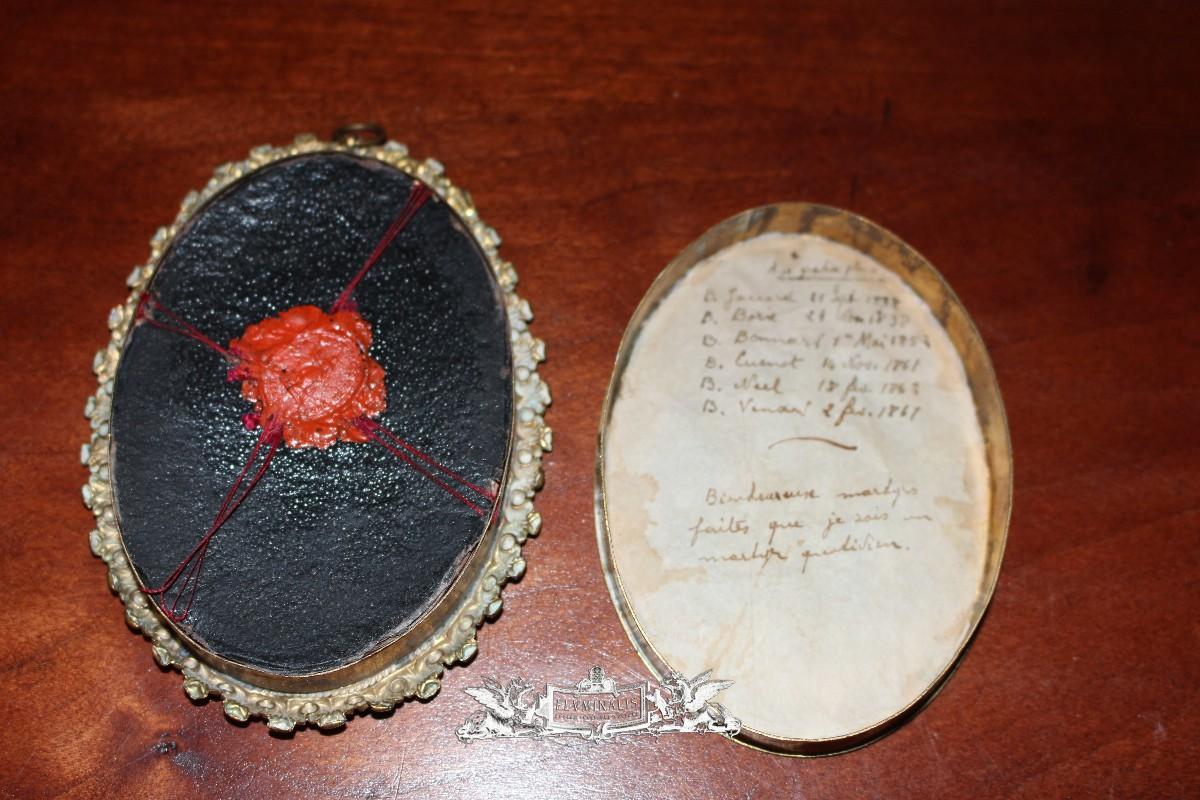 B. Jaccard 21 Sept. 1838
B. Borie 24 1838
B. Bonnard 1er Mai 1852
B. Cuenot 14 Nov. 1861
B. Néel 18 fév. 1862
B. Vénard 2 fév. 1861
Bienheureux martyrs
faites que je sois un
martyr quotidien.
ELVMINALIS